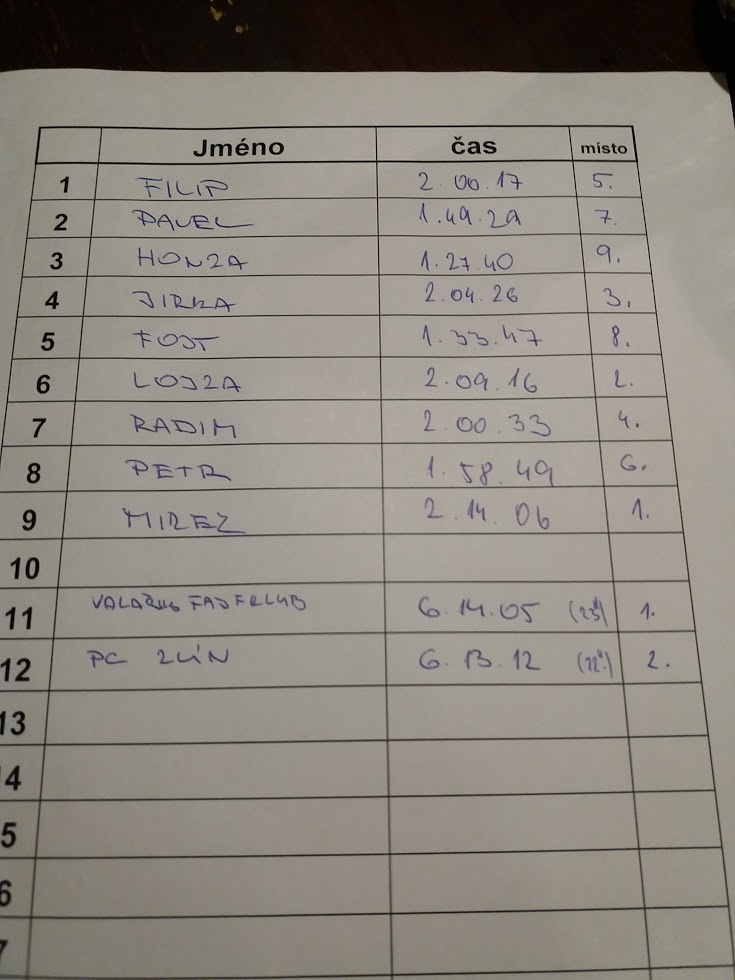 Jméno čas místo
1 FILIP 2.00.17 5.
2 PAVEL 1.49.29 7.
3 HONZA 1.27.40 9.
4 JIRKA 2.04.26 3.
5 FOJT 1.33.47 8.
6 LOJZA 2.09.16 2.
7 RADIM 2.00.33 4.
8 PETR 1.58.49 6.
9 MIREZ 2.14.06 1.
10
11 FAJFKLUB 6.14.05 1.
12 PC ZLÍN 6.13.12 2.
13
4
5
6
7